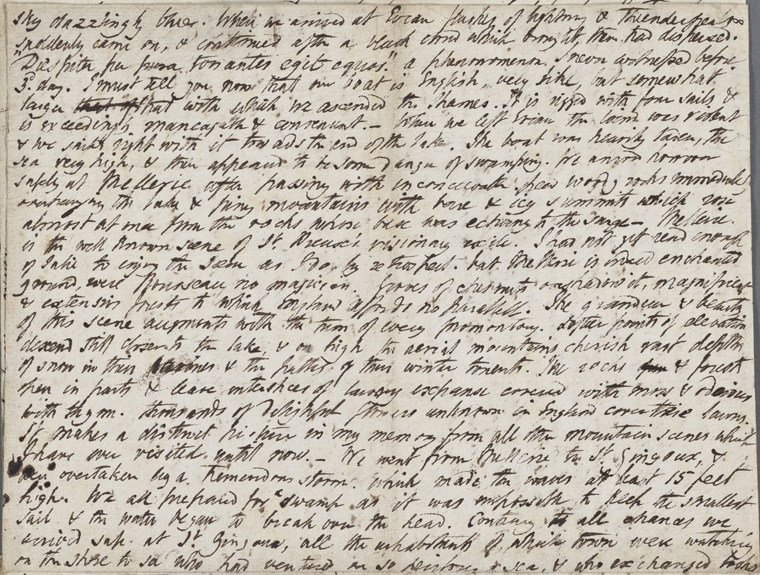 sky dazzingly blue. When we arrived at Evian flashes of lightning & thunder
suddenly came on, & continued after a black cloud which brought them had dispersed.
"Diespiter per pura tonantes egit equos," a phenomenon I never witnessed before
3d day. I must tell you now that our boat is English, very like, but somewhat
larger that with which we ascended the Thames. It is rigged with four sails &
is exceedingly manageable & convenient. — When we left Evian the wind was violent
& we sailed right with it towards the end of the lake. The boat was heavily laden, the
sea very high, & there appeared to be some danger of swamping. We arrived however
safely at Mellerie after passing with inconceivable speed woody rocks immediately
overhanging the lake & piny mountains with bare & icy summits which rose
almost at once from the rocks whose base was echoing to the surge — Mellerie
is the well known scene of St. Preux's visionary exile. I had not yet read enough
of Julie to enjoy the scene as I do by retrospect. but Mellerie is indeed enchanted
ground, were Rousseau no magician. Groves of chesnut overshadow it, magnificent
& extensive forests to which England affords no parallel. The grandeur & beauty
of this scene augments with the turn of every promontory. Loftier points of elevation
descend still closer to the lake, & on high the aerial mountains cherish vast depths
of snow in their ravines & the paths of their winter torrents. The rocks & forests
open in parts & leave interstices of lawny expanse covered with moss & odorous
with thyme. thousands of delightful flowers unknown in England cover these lawns.
It makes a distinct picture in my memory from all other mountain scenes which
I have ever visited until now. — We went from Mellerie to St. Gingoux, &
were overtaken by a tremendous storm which made the waves at least 15 feet
high. We all prepared for a swamp as it was impossible to keep the smallest
sail, & the water began to break over the head. Contrary to all chances we
arrived safe at St Gingoux, all the inhabitants of which town were watching
on the shore to see who had ventured on so a sea, & who exchanged